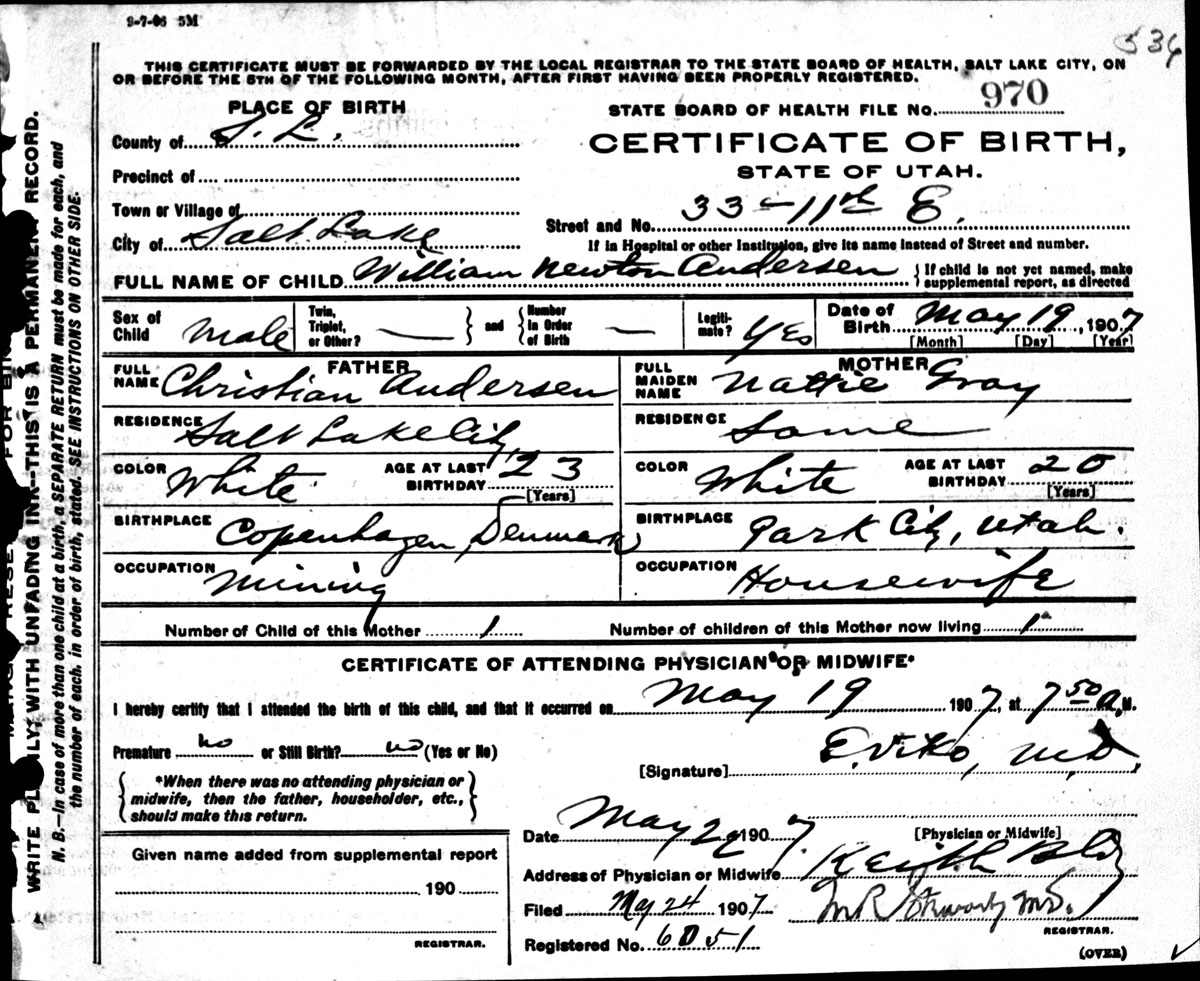 9-7-06 5M
536
THIS CERTIFICATE MUST BE FORWARDED BY THE LOCAL REGISTRAR TO THE STATE BOARD OF HEALTH, SALT LAKE CITY, ON
OR BEFORE THE 5TH OF THE FOLLOWING MONTH, AFTER FIRST HAVING BEEN PROPERLY REGISTERED.
PLACE OF BIRTH
STATE BOARD OF HEALTH FILE No. 970
County of S. L.
CERTIFICATE OF BIRTH,
STATE OF UTAH.
Precinct of
Town or Village of
Street and No. 33-11th E.
City of Salt Lake
If in Hospital or other Institution, give its name instead of Street and number.
FULL NAME OF CHILD William Newton Andersen
If child is not yet named, make
supplemental report, as directed
Sex of Child Male
Twin, Triplet, or Other? —
and
Number in Order of Birth —
Legiti-mate? Yes
Date of Birth May 19, 1907
[Month] [Day] [Year]
FATHER
FULL NAME Christian Andersen
RESIDENCE Salt Lake City
COLOR White
AGE AT LAST BIRTHDAY 23
[Years]
BIRTHPLACE Copenhagen, Denmark
OCCUPATION Mining
MOTHER
FULL MAIDEN NAME Nattie Gray
RESIDENCE Same
COLOR White
AGE AT LAST BIRTHDAY 20
[Years]
BIRTHPLACE Park City, Utah.
OCCUPATION Housewife
Number of Child of this Mother 1
Number of children of this Mother now living 1
CERTIFICATE OF ATTENDING PHYSICIAN OR MIDWIFE*
I hereby certify that I attended the birth of this child, and that it occurred on May 19 1907, at 7 50 A.M.
Premature no or Still Birth? no (Yes or No)
[Signature] E. Viko, M.D.
*When there was no attending physician or
midwife, then the father, householder, etc.,
should make this return.
Date May 1907
[Physician or Midwife]
Given name added from supplemental report
190
REGISTRAR.
Address of Physician or Midwife Keith Bld
Filed May 24 1907
M R
REGISTRAR.
Registered No. 6051
(OVER)
WRITE PLAINLY, WITH UNFADING INK--THIS IS A PERMANENT RECORD.
N. B.—In case of more than one child at a birth, a SEPARATE RETURN must be made for each, and
the number of each, in order of birth, stated. SEE INSTRUCTIONS ON OTHER SIDE.